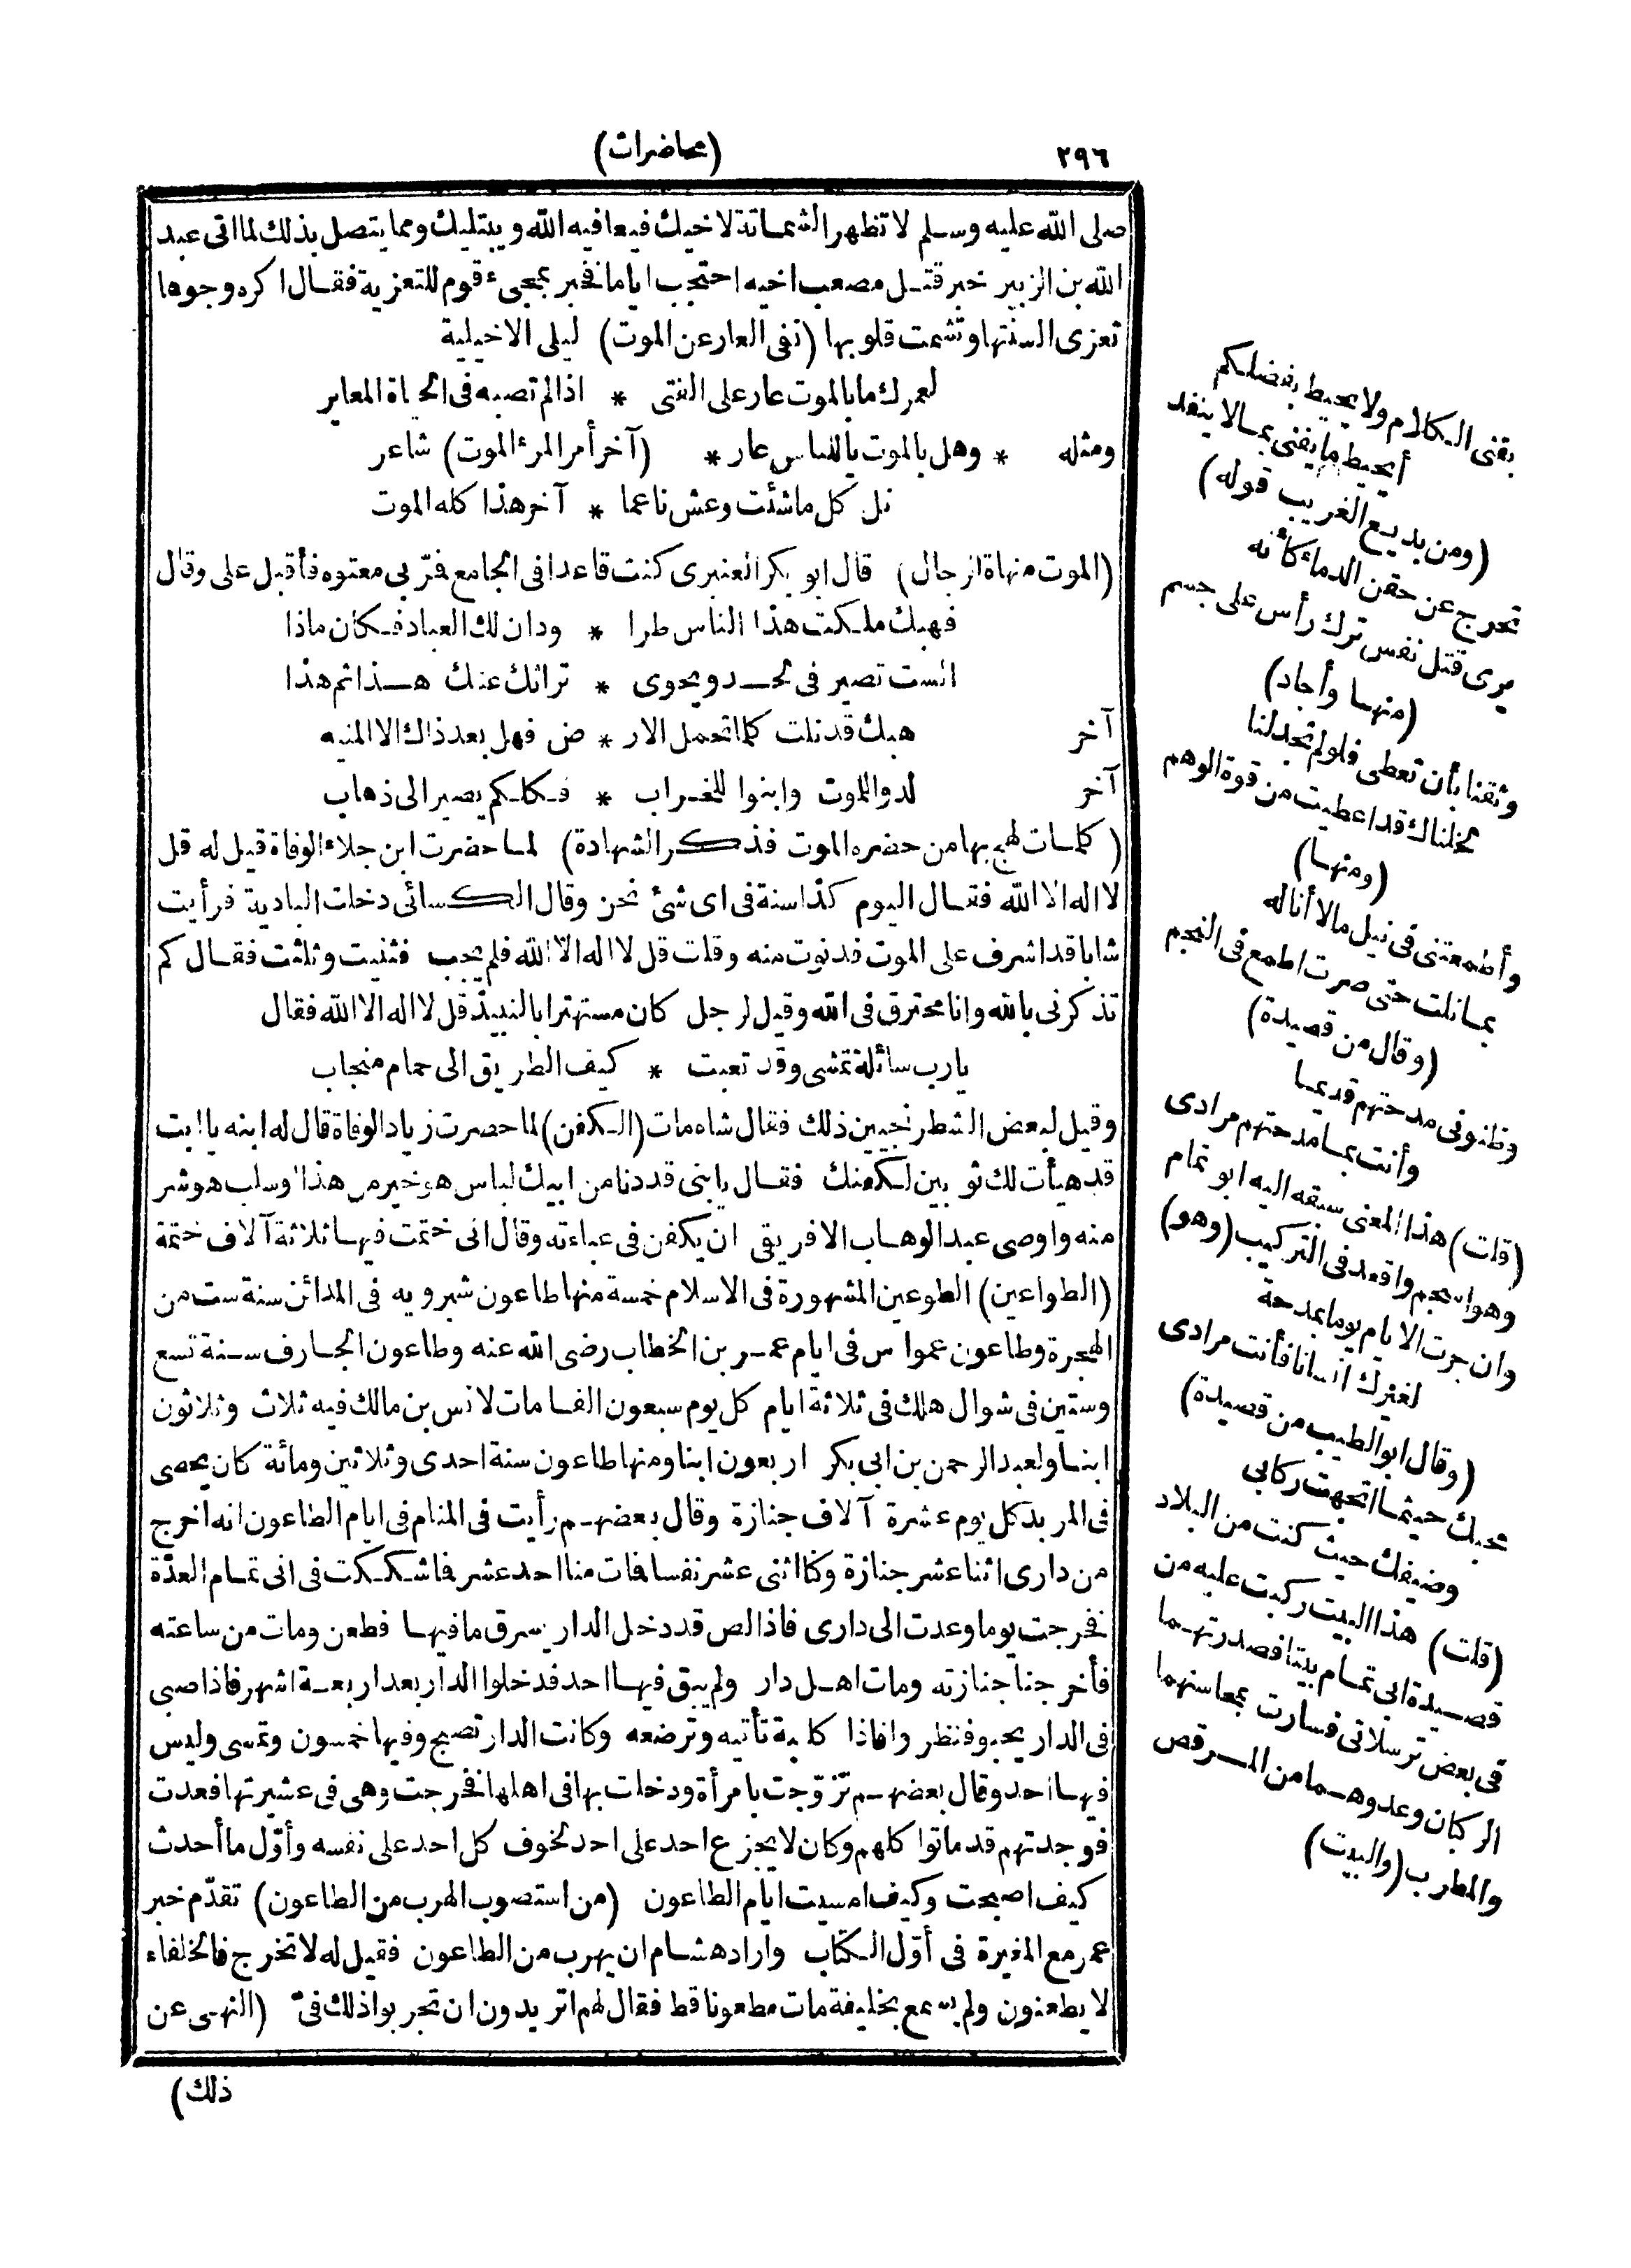 ٢٩٦
(محاضرات)
صلى الله عليه وسلم لا تظهر الشماتة لاخيك فيعافيه الله ويبتليك ومما يتصل بذلك لما اتى عبد
الله بن الزبير خبر قتل مصعب اخيه احتجب اياما فخبر بمجىء قوم للتعزية فقال اكره وجوها
تعزى السنتها وتشمت قلوبها (نفى العار عن الموت) ليلى الاخيلية
لعمرك ما بالموت عار على الفتى * اذا لم تصبه فى الحياة المعاير
ومثله * وهل بالموت يا للناس عار * (آخر أمر المرء الموت) شاعر
نل كل ما شئت وعش ناعما * آخر هذا كله الموت
(الموت منهاة الرجال) قال ابو بكر العنبرى كنت قاعدا فى الجامع فمرّ بى معتوه فأقبل على وقال
فهبك ملكت هذا الناس طرا * ودان لك العباد فكان ماذا
الست تصير فى لحد ويحوى * تراثك عنك هذا ثم هذا
آخر هبك قد نلت كلما تحمل الار * ض فهل بعد ذاك الا المنيه
آخر لدوا للموت وابنوا للخراب * فكلكم يصير الى ذهاب
(كلمات لهج بها من حضره الموت فذكر الشهادة) لما حضرت ابن جلاء الوفاة قيل له قل
لا اله الا الله فقال اليوم كذا سنة فى اى شئ نحن وقال الكسائى دخلت البادية فرأيت
شابا قد اشرف على الموت فدنوت منه وقلت قل لا اله الا الله فلم يجب فثنيت وثلثت فقال كم
تذكرنى بالله وانا محترق فى الله وقيل لرجل كان مستهترا بالنبيذ قل لا اله الا الله فقال
يا رب سائلة تمشى وقد تعبت * كيف الطريق الى حمام منجاب
وقيل لبعض الشطرنجيين ذلك فقال شاه مات (الكفن) لما حضرت زياد الوفاة قال له ابنه يا ابت
قد هيأت لك ثوبين لكفنك فقال يا بنى قد دنا من ابيك لباس هو خير من هذا او سلب هو شر
منه واوصى عبد الوهاب الافريقى ان يكفن فى عباءته وقال انى ختمت فيها ثلاثة آلاف ختمة
(الطواعين) الطوعين المشهورة فى الاسلام خمسة منها طاعون شيرويه فى المدائن سنة ست من
الهجرة وطاعون عمواس فى ايام عمر بن الخطاب رضى الله عنه وطاعون الجارف سنة تسع
وستين فى شوال هلك فى ثلاثة ايام كل يوم سبعون الفا مات لانس بن مالك فيه ثلاث وثلاثون
ابنا ولعبد الرحمن بن ابى بكر اربعون ابنا ومنها طاعون سنة احدى وثلاثين ومائة كان يحصى
فى المربد كل يوم عشرة آلاف جنازة وقال بعضهم رأيت فى المنام فى ايام الطاعون انه اخرج
من دارى اثنا عشر جنازة وكنا اثنى عشر نفسا فمات منا احد عشر فاشككت فى انى تمام العدّة
فخرجت يوما وعدت الى دارى فاذا لص قد دخل الدار يسرق ما فيها فطعن ومات من ساعته
فأخرجنا جنازته ومات اهل دار ولم يبق فيها احد فدخلوا الدار بعد اربعة اشهر فاذا صبى
فى الدار يحبو فنظر وا فاذا كلبة تأتيه وترضعه وكانت الدار تصبح وفيها خمسون وتمسى وليس
فيها احد وقال بعضهم تزوّجت بامرأة ودخلت بها فى اهلها فخرجت وهى فى عشيرتها فعدت
فوجدتهم قد ماتوا كلهم وكان لا يجزع احد على احد لخوف كل احد على نفسه وأوّل ما أحدث
كيف اصبحت وكيف امسيت ايام الطاعون (من استصوب الهرب من الطاعون) تقدّم خبر
عمر مع المغيرة فى أوّل الكتاب واراد هشام ان يهرب من الطاعون فقيل له لا تخرج فالخلفاء
لا يطعنون ولم يسمع بخليفة مات مطعونا قط فقال لهم اتريدون ان تجربوا ذلك فىّ (النهى عن
ذلك)
يفنى الكلام ولا يحيط بفضلكم
أيحيط ما يفنى بما لا ينفد
(ومن بديع الغريب قوله)
تحرج عن حقن الدماء كأنه
يرى قتل نفس ترك رأس على جسم
(منها وأجاد)
وثقنا بأن تعطى فلو لم تجد لنا
لخلناك قد اعطيت من قوة الوهم
(ومنها)
وأطمعتنى فى نيل ما لا أناله
بما نلت حتى صرت اطمع فى النجم
(وقال من قصيدة)
وظنونى مدحتهم قديما
وأنت بما مدحتهم مرادى
(قلت) هذا المعنى سبقه اليه ابو تمام
وهو اسجم واقعد فى التركيب (وهو)
وان جرت الايام يوما بمدحة
لغيرك انسانا فأنت مرادى
(وقال ابو الطيب من قصيدة)
محبك حيثما اتجهت ركابى
وضيفك حيث كنت من البلاد
(قلت) هذا البيت ركبت عليه من
قصيدة ابى تمام بيتا فصدرتهما
فى بعض ترسلاتى فسارت بمحاسنهما
الركبان وعدوهما من المرقص
والمطرب (والبيت)